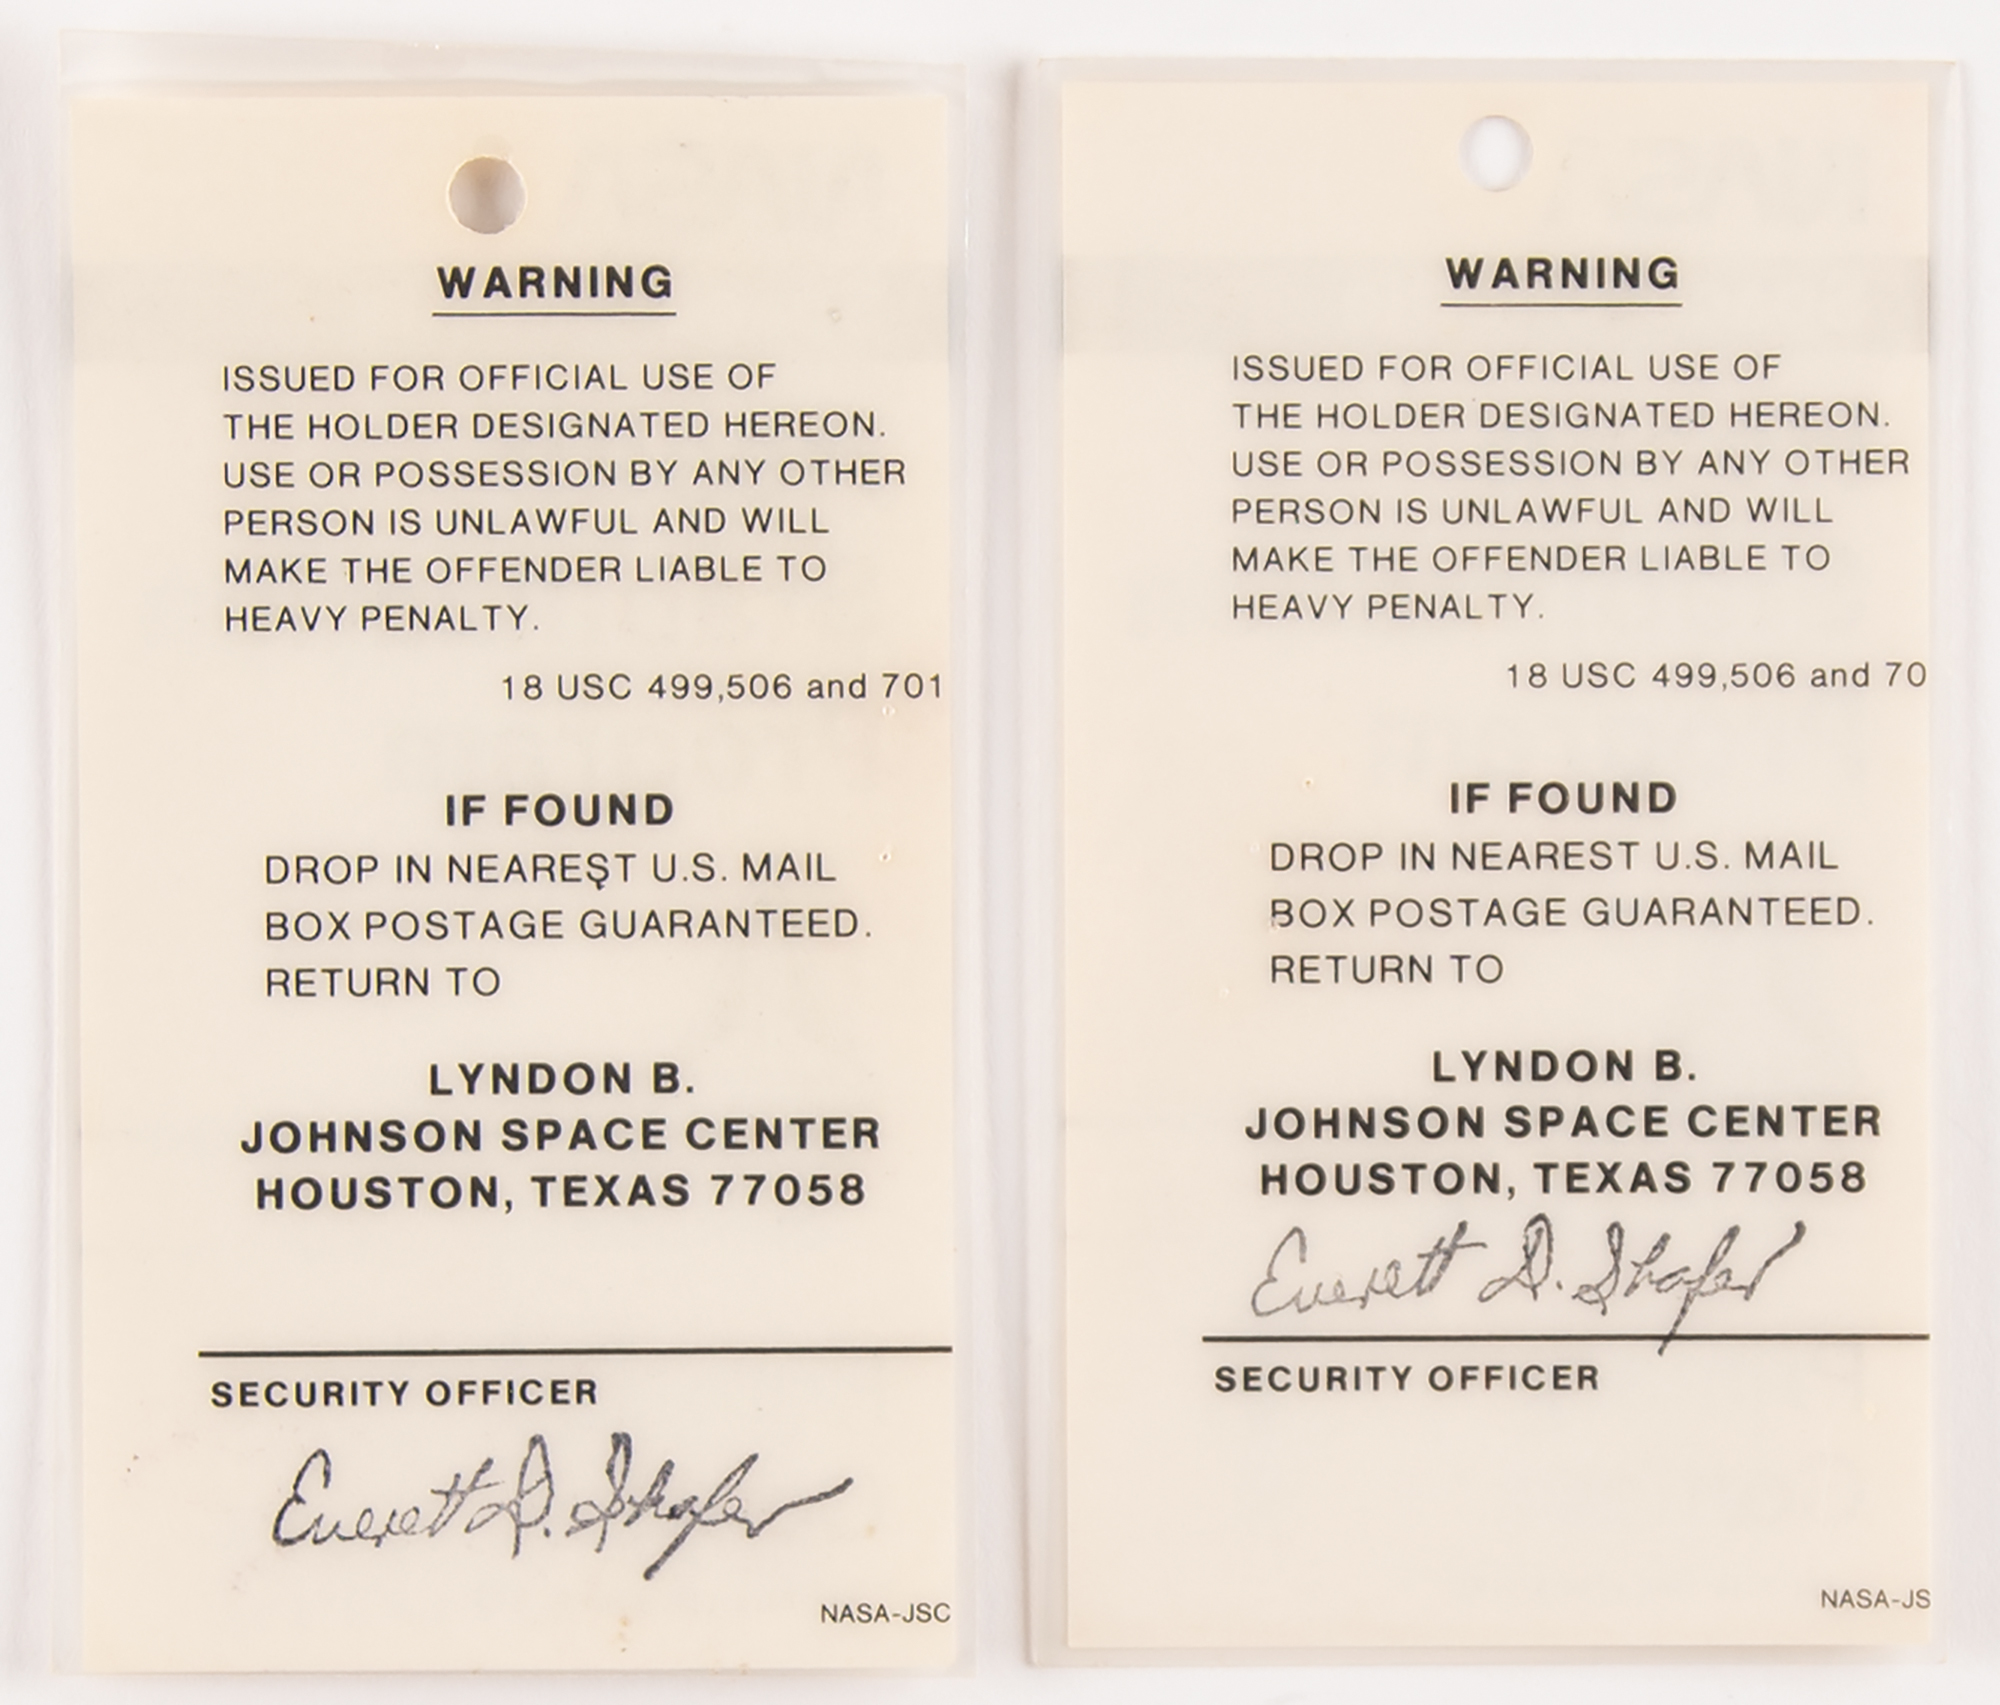 WARNING
ISSUED FOR OFFICIAL USE OF
THE HOLDER DESIGNATED HEREON.
USE OR POSSESSION BY ANY OTHER
PERSON IS UNLAWFUL AND WILL
MAKE THE OFFENDER LIABLE TO
HEAVY PENALTY.
18 USC 499,506 and 701
IF FOUND
DROP IN NEAREST U.S. MAIL
BOX POSTAGE GUARANTEED.
RETURN TO
LYNDON B.
JOHNSON SPACE CENTER
HOUSTON, TEXAS 77058
SECURITY OFFICER
Everett D. Shafer
NASA-JSC
WARNING
ISSUED FOR OFFICIAL USE OF
THE HOLDER DESIGNATED HEREON.
USE OR POSSESSION BY ANY OTHER
PERSON IS UNLAWFUL AND WILL
MAKE THE OFFENDER LIABLE TO
HEAVY PENALTY.
18 USC 499,506 and 70
IF FOUND
DROP IN NEAREST U.S. MAIL
BOX POSTAGE GUARANTEED.
RETURN TO
LYNDON B.
JOHNSON SPACE CENTER
HOUSTON, TEXAS 77058
Everett D. Shafer
SECURITY OFFICER
NASA-JS